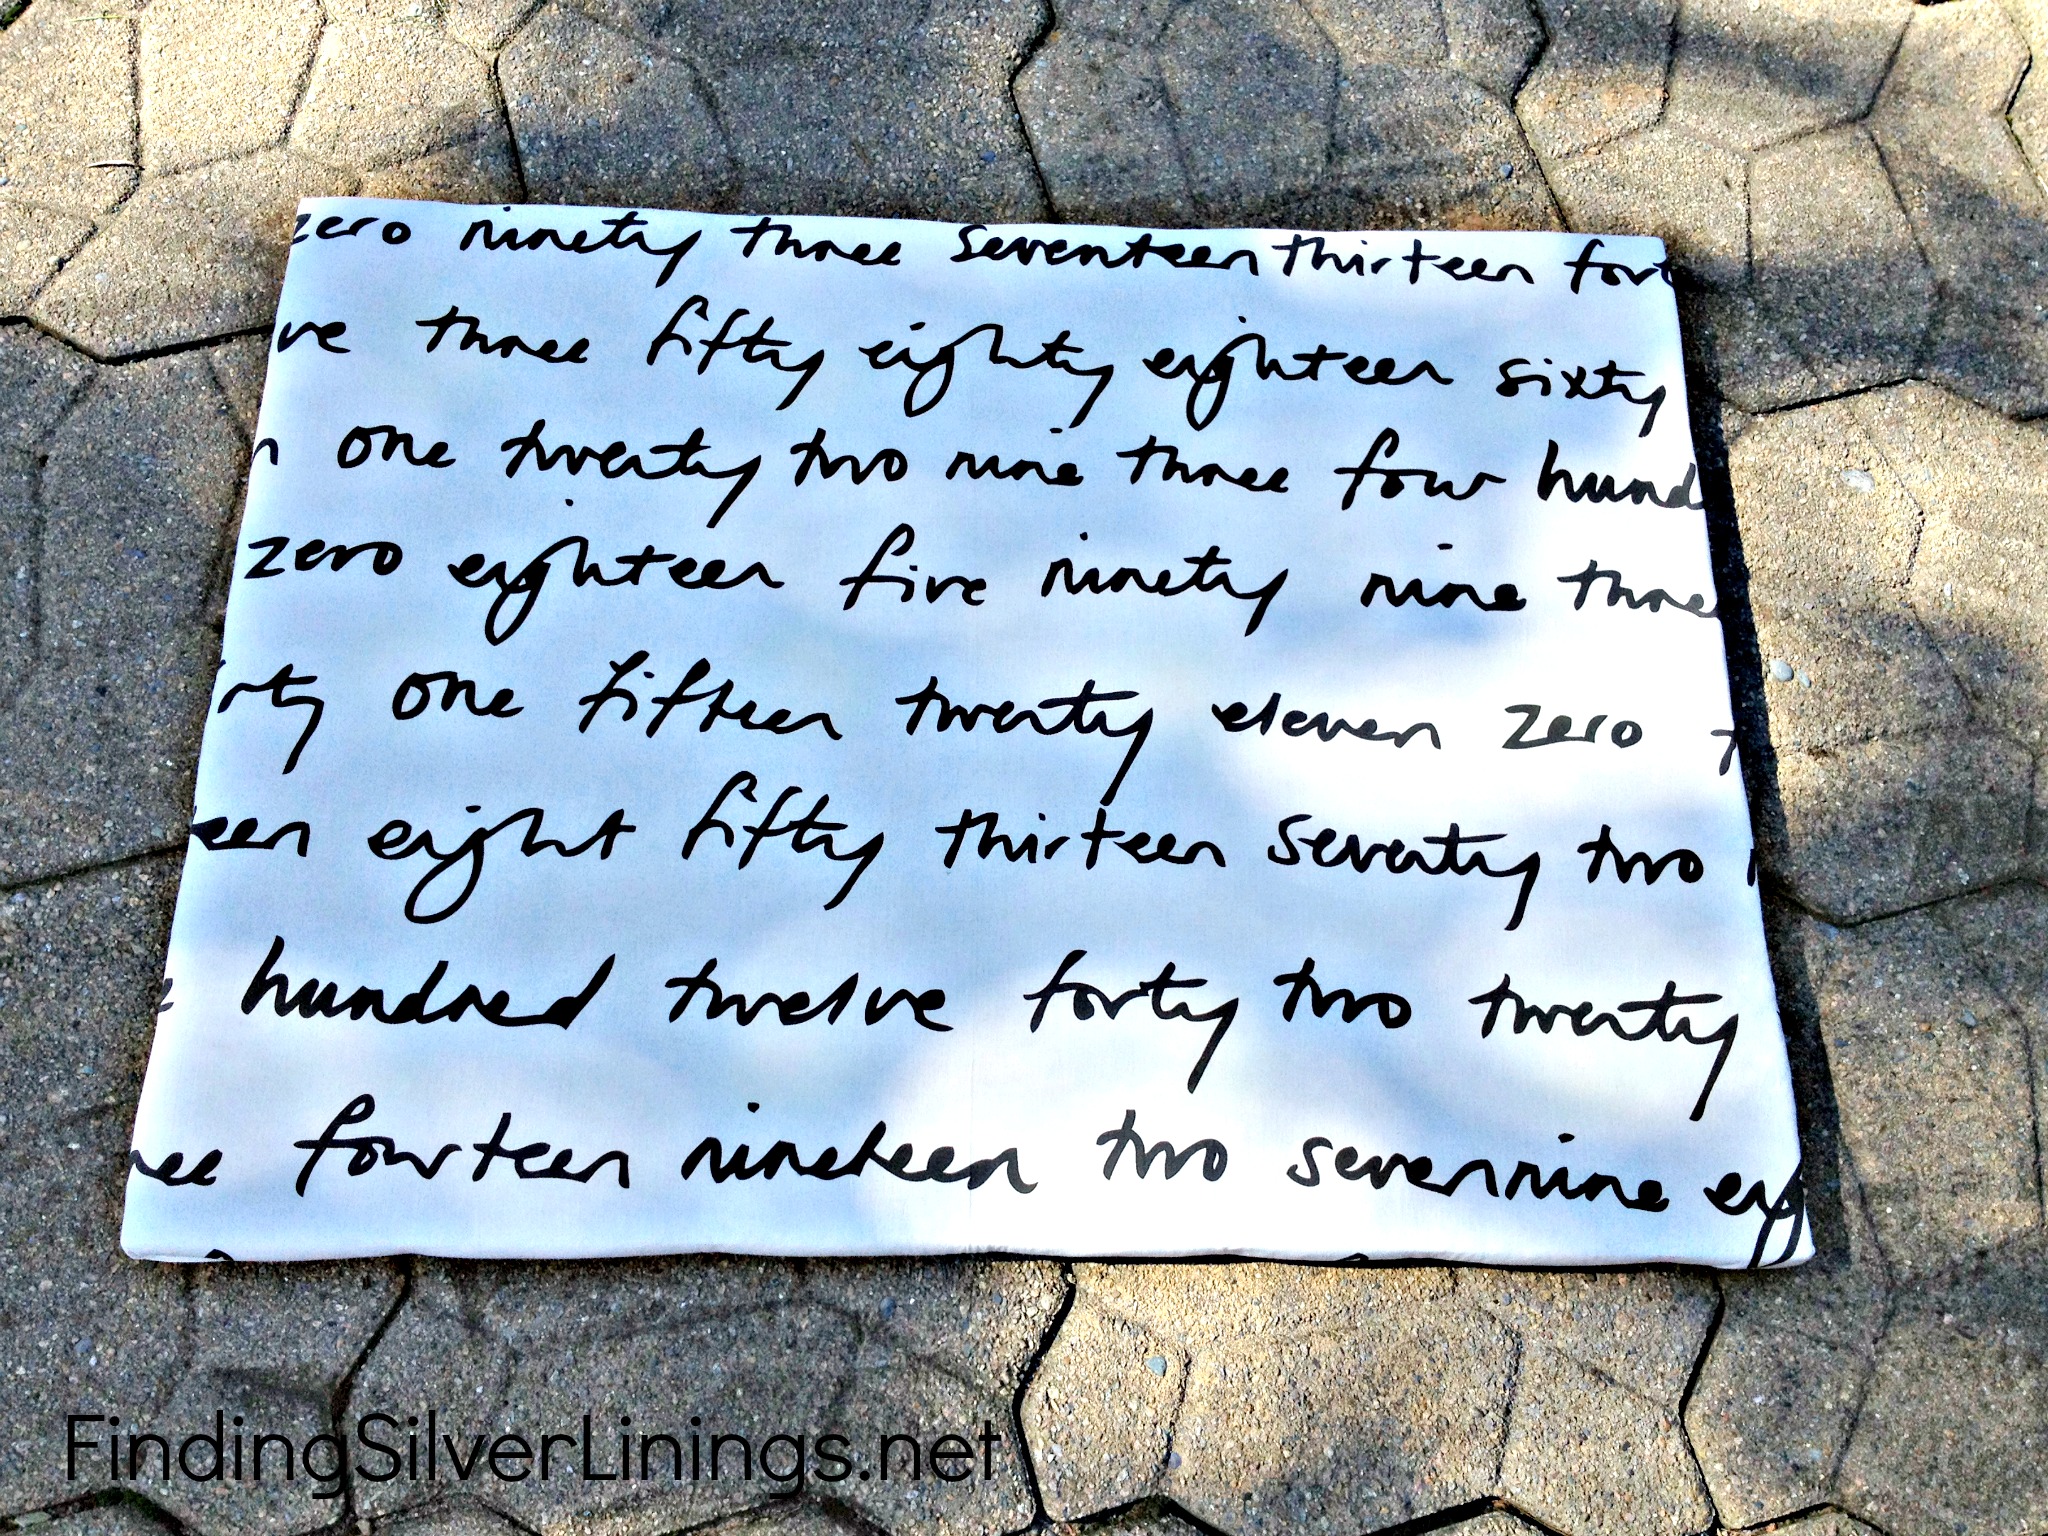 zero ninety three seventeen thirteen fort
ve three fifty eighty eighteen sixty
n one twenty two nine three four hund
zero eighteen five ninety nine three
rty one fifteen twenty eleven zero t
een eight fifty thirteen seventy two
e hundred twelve forty two twenty
ree fourteen nineteen two seven nine eig
FindingSilverLinings.net